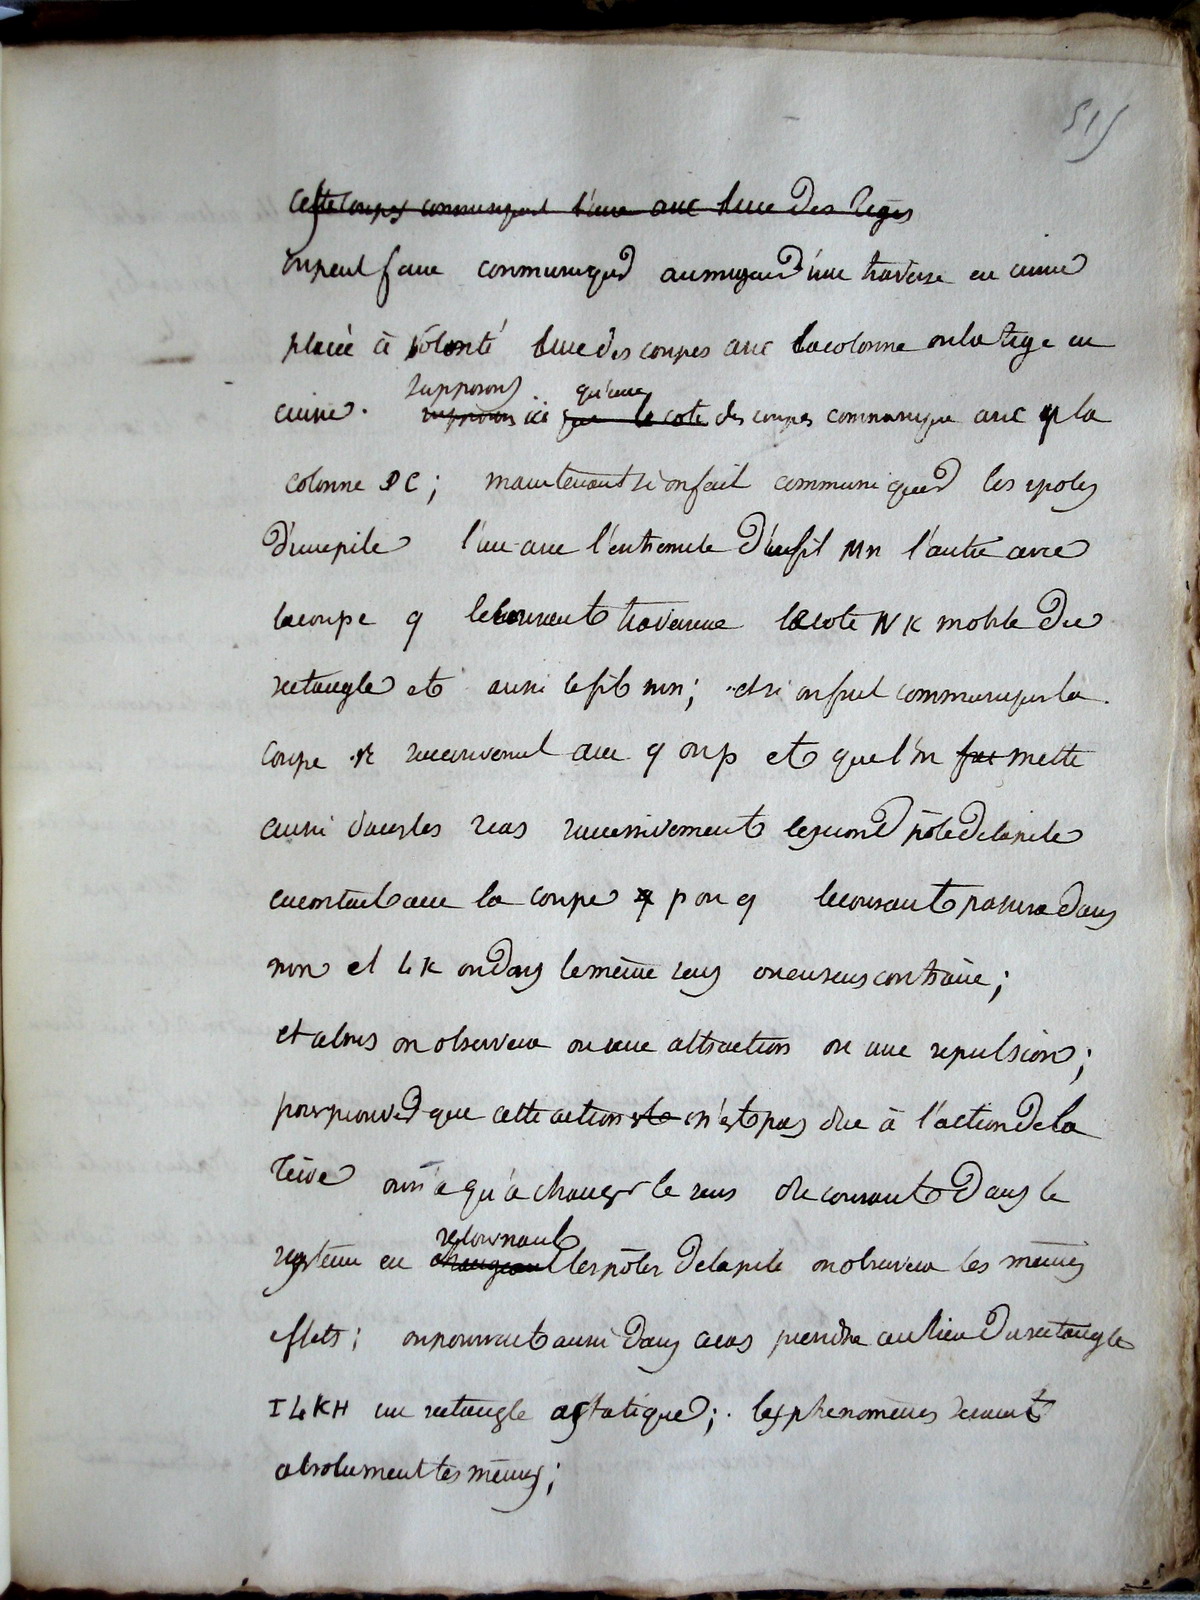 515
cette coupes communiquent l'une avec l'une des tiges
on peut faire communiquer au moyen d'une traverse en cuivre
placée à volonté l'une des coupes avec la colonne ou la tige en
cuivre. supposons ici qu'une des coupes communique avec la
colonne DC; maintenant si on fait communiquer les poles
d'une pile l'un avec l'extremité d'un fil MN l'autre avec
la coupe q le courant traversera le coté NK mobile du
rectangle et aussi le fil mn; et si on fait communiquer la
coupe r successivement avec q ou p et que l'on mette
aussi dans les cas successivement le second pôle de la pile
en contact avec la coupe p ou q le courant passera dans
mn et LK ou dans le même sens ou en sens contraire;
et alors on observera ou une attraction ou une repulsion;
pour prouver que cette action n'est pas due à l'action de la
terre on n'a qu'à changer le sens du courant dans le
systeme en retournant les pôles de la pile on observera les mêmes
effets; on pourrait aussi dans ce cas prendre au lieu du rectangle
ILKH un rectangle astatique; les phenomènes seront
absolument les mêmes;